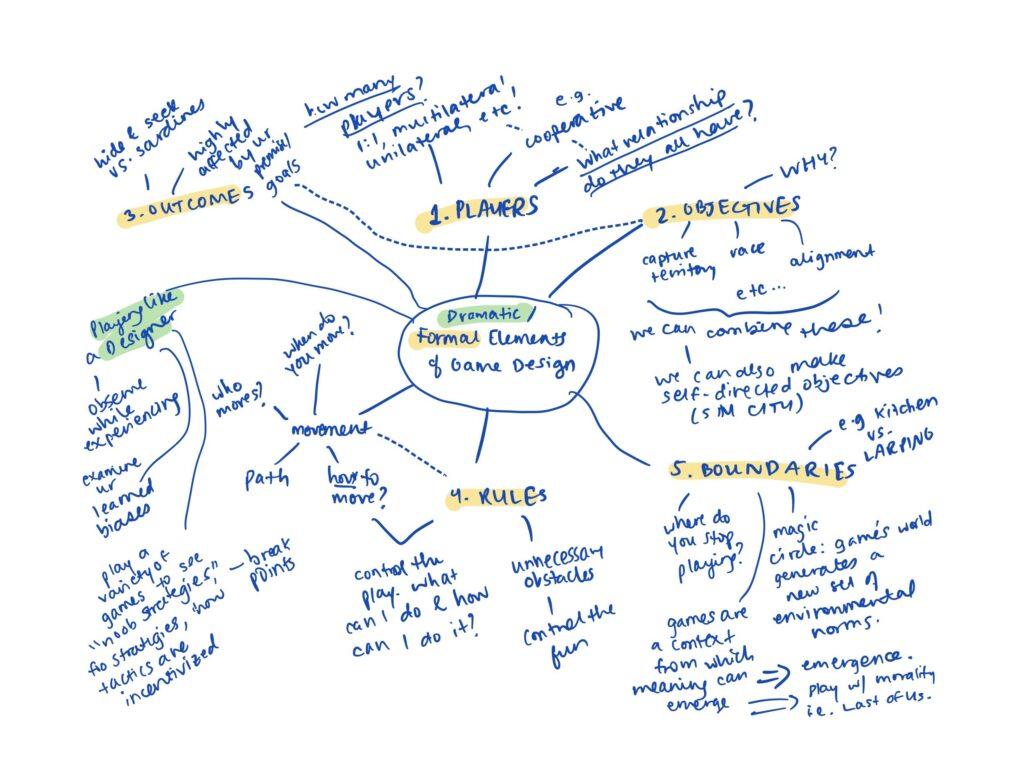 Dramatic /
Formal Elements
of Game Design
1. PLAYERS
how many
players?
1:1, multilateral
unilateral, etc!
e.g.
cooperative
what relationship
do they all have?
2. OBJECTIVES
WHY?
capture
territory
race
alignment
etc...
we can combine these!
we can also make
self-directed objectives
(SIM CITY)
3. OUTCOMES
hide & seek
vs. sardines
highly
affected
by ur
premise/
goals
Playing like
a Designer
observe
while
experiencing
examine
ur
learned
biases
play a
variety of
games to see
"noob strategies,"
pro strategies, how
tactics are
incentivized
break
points
movement
who
moves?
when do
you move?
path
how to
move?
4. RULES
control the
play. what
can I do & how
can I do it?
unnecessary
obstacles
control the
fun
5. BOUNDARIES
e.g Kitchen
vs.
LARPING
where do
you stop
playing?
magic
circle: game's world
generates a
new set of
environmental
norms.
games are
a context
from which
meaning can
emerge
emergence.
play w/ morality
i.e. Last of Us.